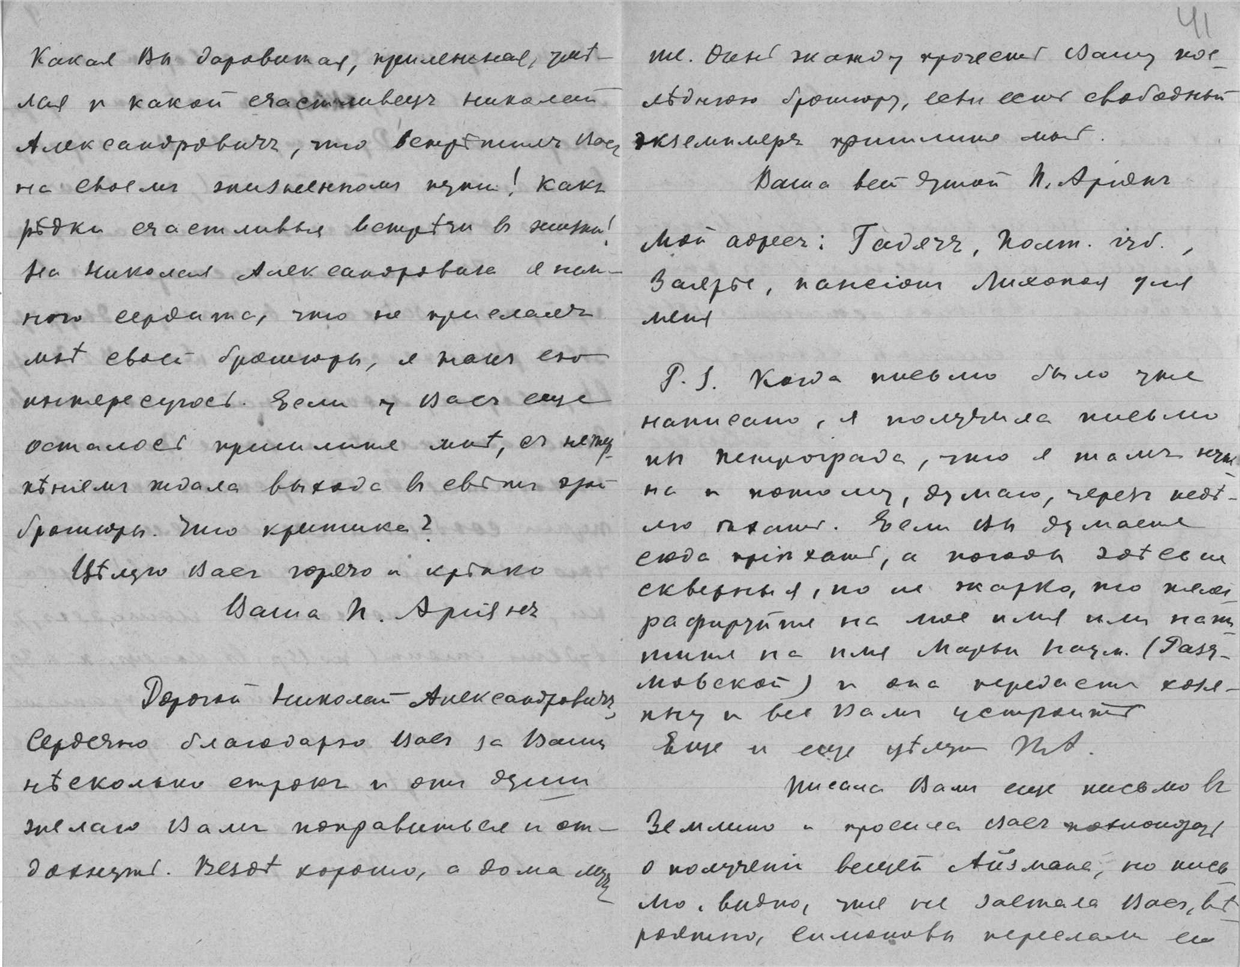 Какая Вы даровитая, прилежная, умѣ-
лая и какой счастливецъ Николай
Александровичъ, что встрѣтилъ Васъ
на своемъ жизненномъ пути! Какъ
рѣдки счастливыя встрѣчи въ жизни!
На Николая Александровича я нем-
ного сердита, что не прислалъ
мнѣ своей брошюры, я такъ ею
интересуюсь. Если у Васъ еще
осталось пришлите мнѣ, съ нетер-
пѣніемъ ждала выхода въ свѣтъ этой
брошюры. Что критика?
Цѣлую Васъ горячо и крѣпко
Ваша П. Аріянъ
Дорогой Николай Александровичъ,
Сердечно благодарю Васъ за Ваши
нѣсколько строкъ и отъ души
желаю Вамъ поправиться и от-
дохнуть. Вездѣ хорошо, а дома луч-
41
ше. Очень жажду прочесть Вашу пос-
лѣднюю брошюру, если есть свободный
экземпляръ пришлите мнѣ.
Ваша всей душой П. Аріянъ
Мой адресъ: Гадячъ, Полт. губ.,
Заярье, пансіонъ для
меня
P.S. Когда письмо было уже
написано, я получила письмо
изъ Петрограда, что я тамъ нуж-
на и потому, думаю, черезъ недѣ-
лю ѣхать. Если Вы думаете
сюда пріѣхать, а погоды здѣсь
скверныя, но не жарко, то телег-
рафируйте на мое имя или напи-
шите на имя Марьи Наум. (Разу-
мовской) и она передастъ хозя-
ину и все Вамъ устроитъ
Еще и еще цѣлую ПА.
Писала Вамъ еще письмо въ
Землино и просила Васъ похлопотать
о полученіи вещей Айзмана, но пись-
мо, видно, уже не застало Васъ, вѣ-
роятно, Симоновы переслали его